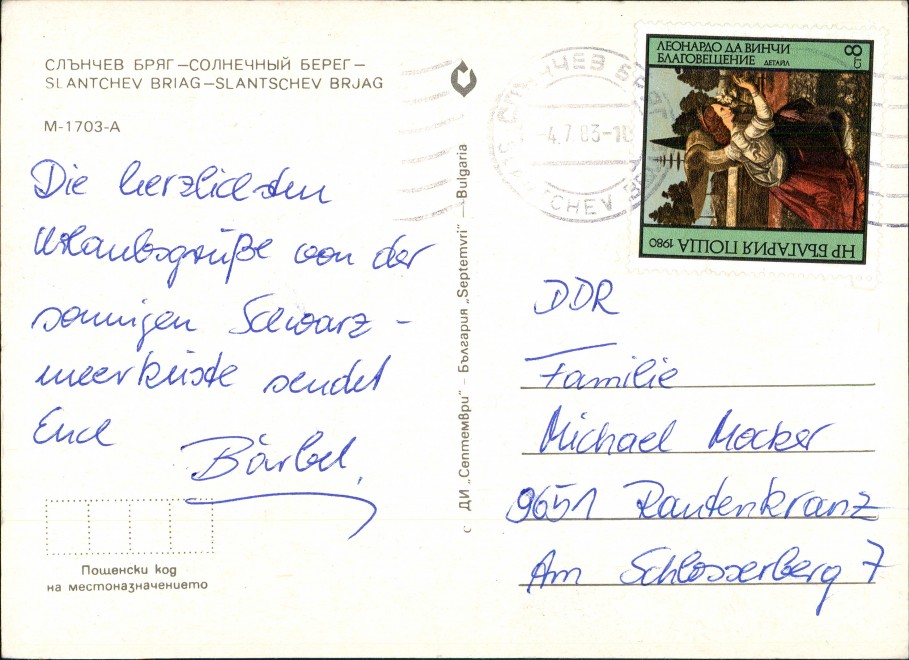 СЛЪНЧЕВ БРЯГ—СОЛНЕЧНЫЙ БЕРЕГ—
SLANTCHEV BRIAG—SLANTSCHEV BRJAG
М-1703-А
Die herzlichsten
Urlaubsgrüße von der
sonnigen Schwarz-
meerküste sendet
Euch
Bärbel.
Пощенски код
на местоназначението
© ДИ „Септември" — България „Septemvri" — Bulgaria
СЛЪНЧЕВ БРЯГ
-4.7.83-18
ЛЕОНАРДО ДА ВИНЧИ
БЛАГОВЕЩЕНИЕ ДЕТАЙЛ
8 СТ
НР БЪЛГАРИЯ ПОЩА 1980
DDR
Familie
Michael Mocker
9651 Rautenkranz
Am Schlosserberg 7